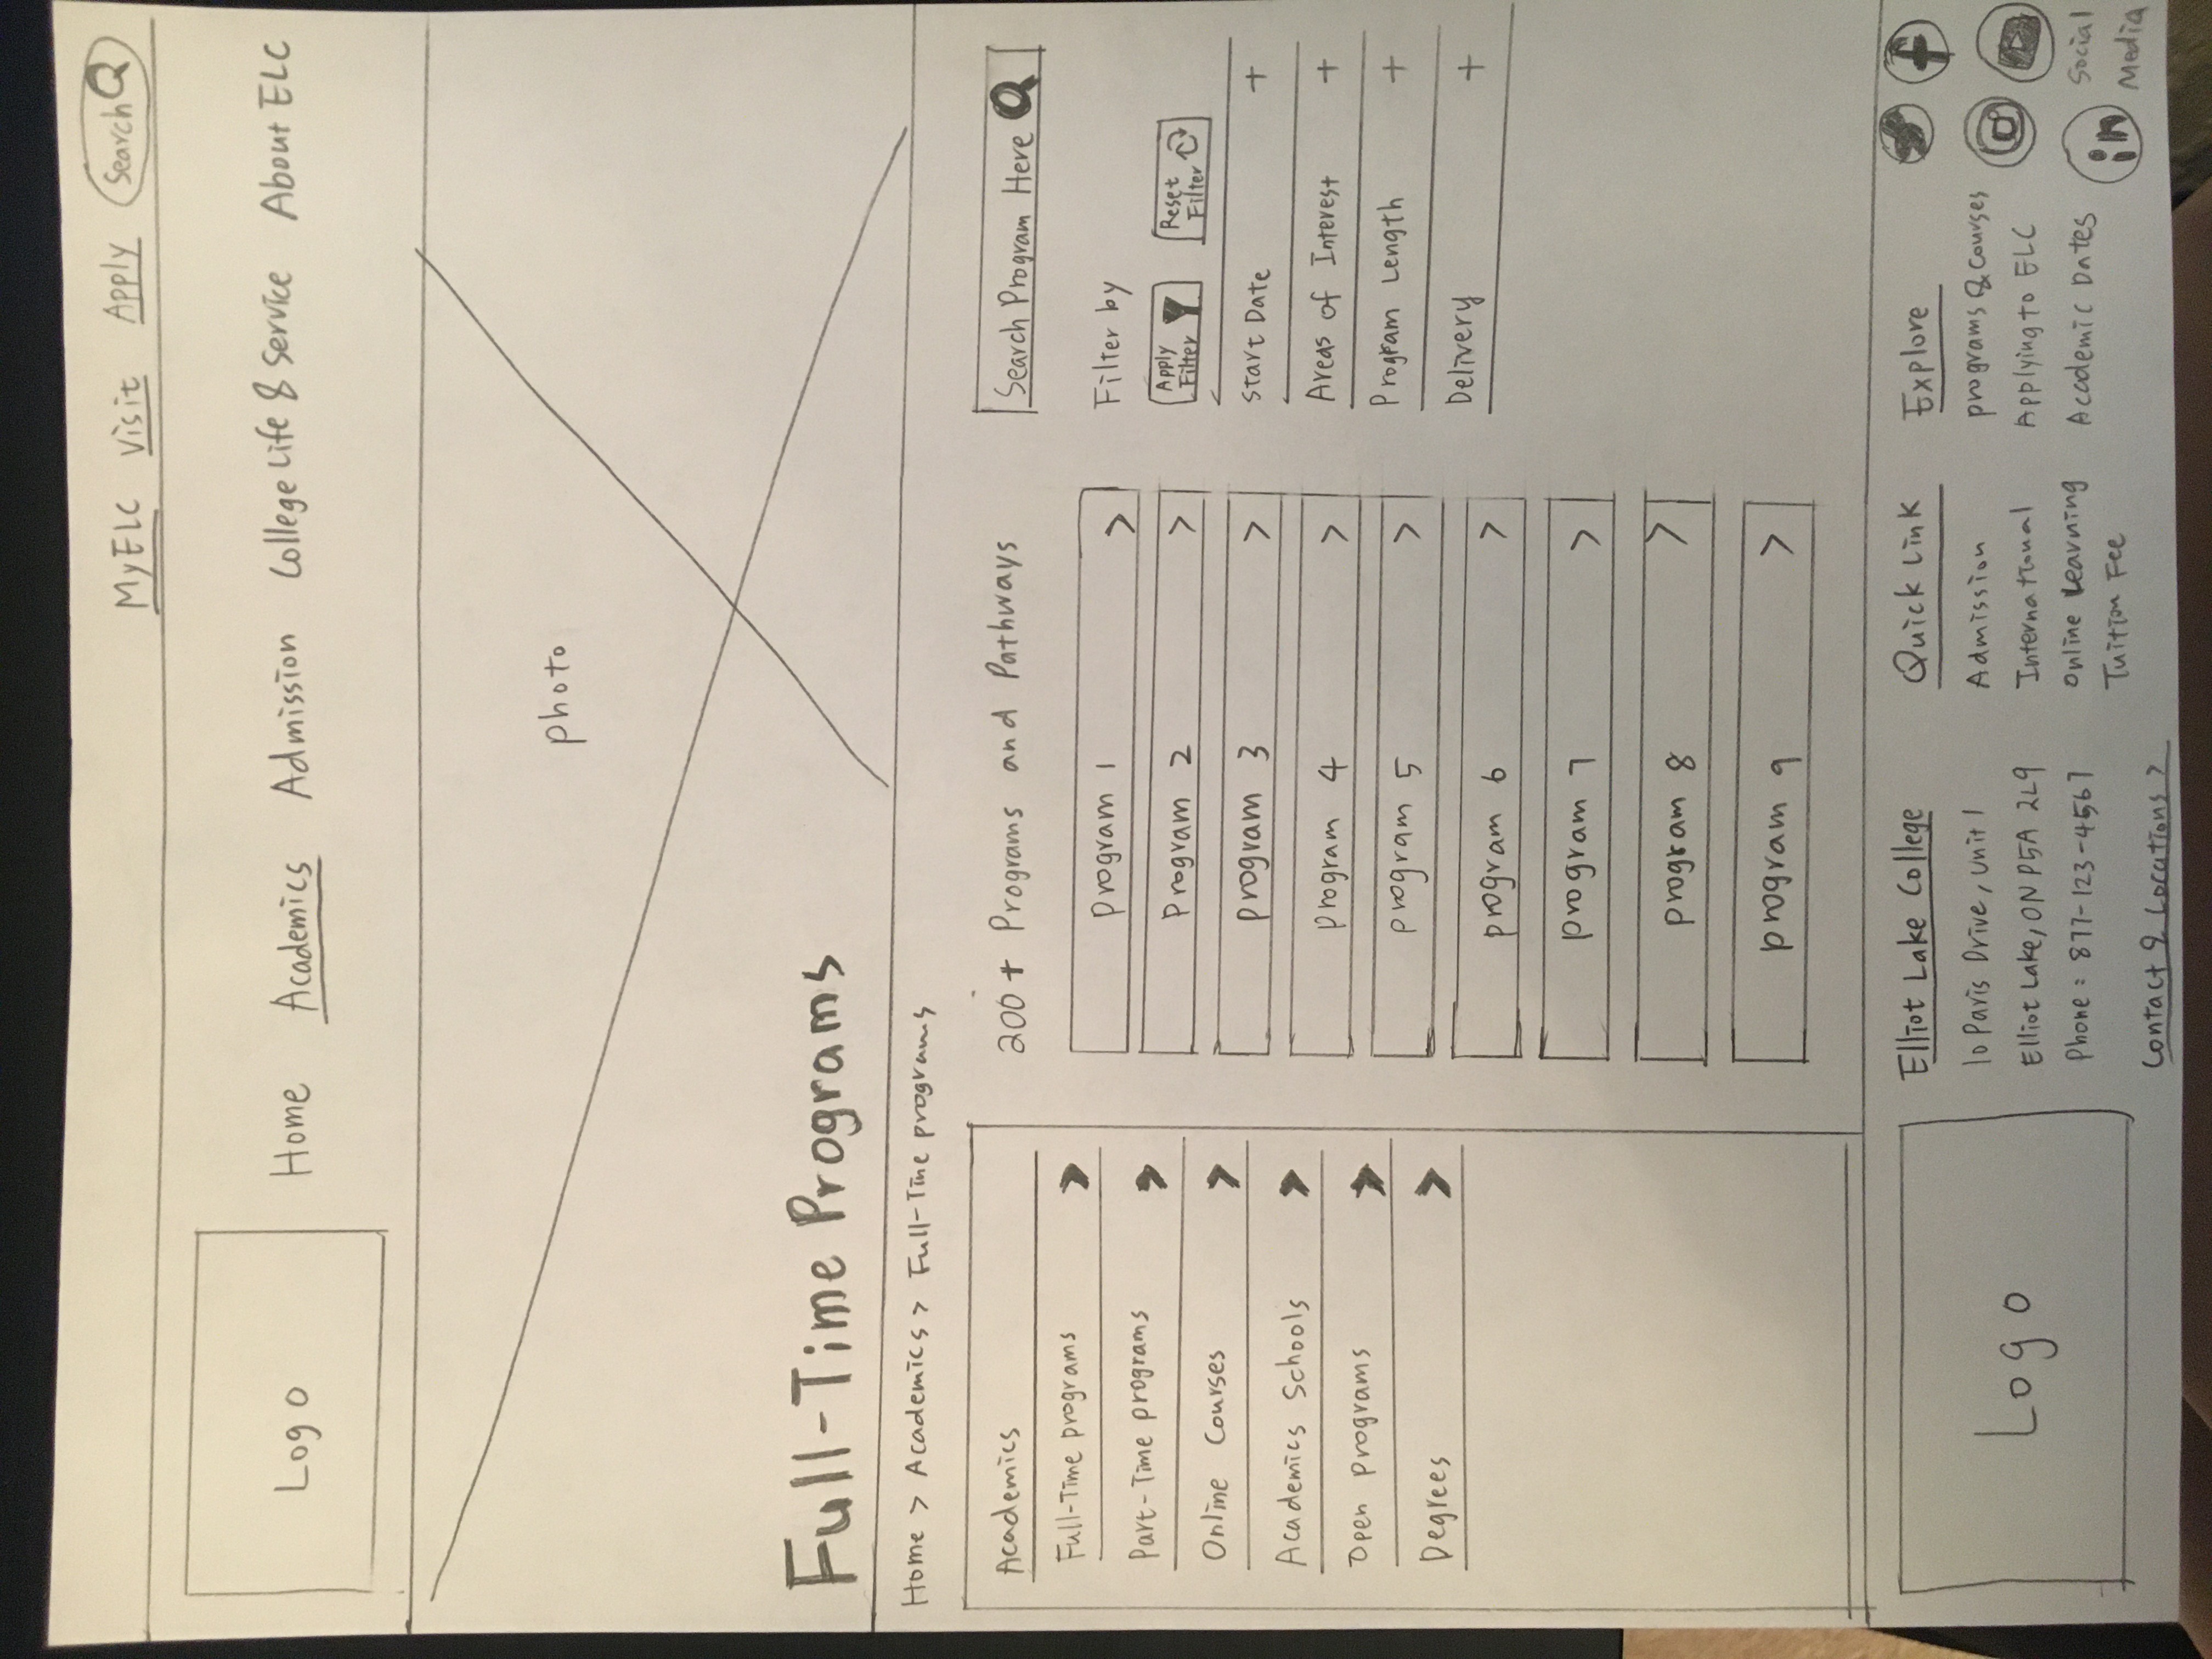 MyELC Visit Apply Search
Logo
Home Academics Admission College Life & Service About ELC
photo
Full-Time Programs
Home > Academics > Full-Time programs
Academics
Full-Time programs
Part-Time programs
Online Courses
Academics Schools
Open programs
Degrees
200+ Programs and Pathways
program 1 >
Program 2 >
program 3 >
program 4 >
program 5 >
program 6 >
program 7 >
program 8 >
program 9 >
Search Program Here
Filter by
Apply
Filter
Reset
Filter
Start Date +
Areas of Interest +
Program Length +
Delivery +
Logo
Elliot Lake College
10 Paris Drive, Unit 1
Elliot Lake, ON P5A 2L9
Phone: 877-123-4567
Contact & Locations >
Quick Link
Admission
International
Online Learning
Tuition Fee
Explore
programs & Courses
Applying to ELC
Academic Dates
f
in
Social
Media